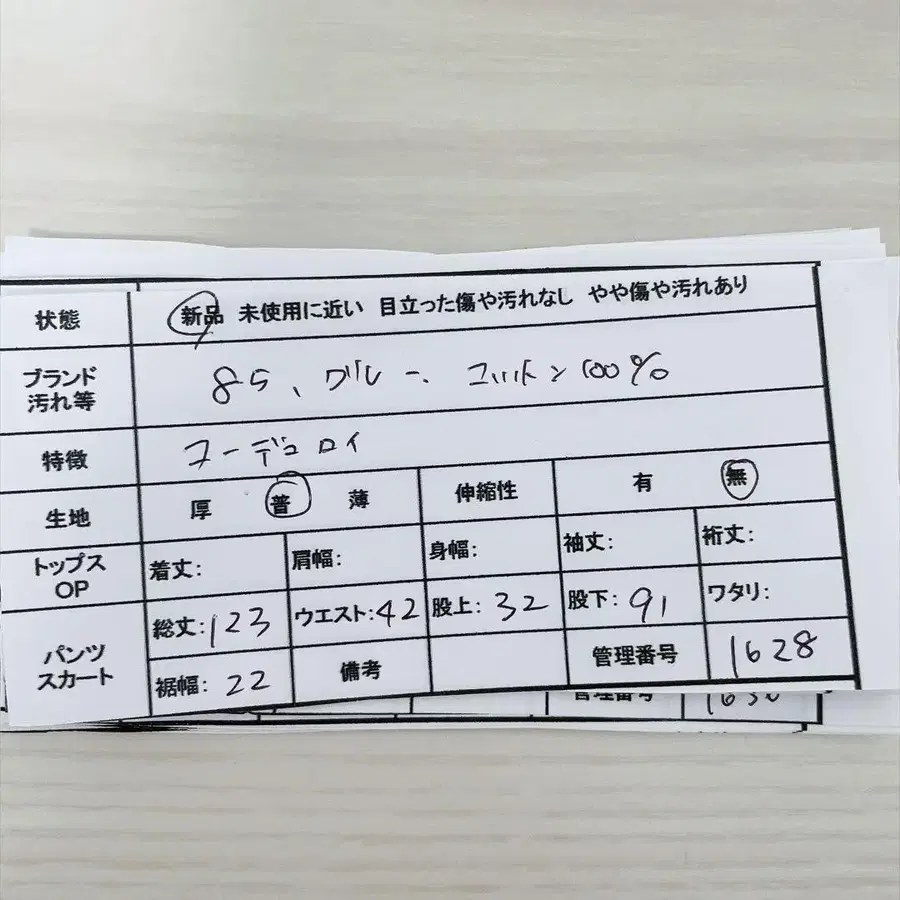 状態 新品 未使用に近い 目立った傷や汚れなし やや傷や汚れあり
ブランド
汚れ等 85、ブルー、コットン100%
特徴 コーデュロイ
生地 厚 普 薄 伸縮性 有 無
トップス
OP 着丈: 肩幅: 身幅: 袖丈: 裄丈:
パンツ
スカート 総丈:123 ウエスト:42 股上:32 股下:91 ワタリ:
裾幅:22 備考 管理番号 1628
管理番号